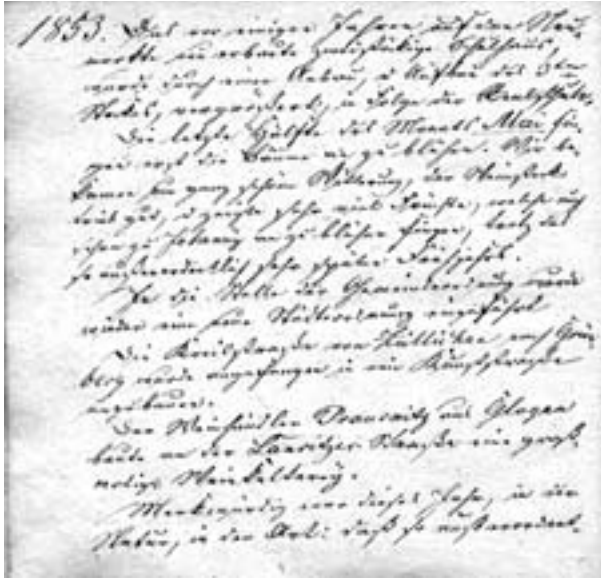 1853. Das vor einiger Jahren auf dem Neu-
markte neu erbaute zweistökige Schulhaus,
wurde durch einen Anbau, u Aufbau des 3ten
Stokes, vergrößert, in Folge der Realschule.
Die letzte Hälfte des Monats Mai fin-
gen erst die Bäume an zu blühen. Wir be-
kamen nun ganz schöne Witterung, der Weinstock
trieb gut, u zeigte sehr viel Früchte, welche auch
schon zu Johany an zu blühen fingen, trotz des
so außerordentlich sehr späten Frühjahrs.
An die Stelle der Gemeindeordnung wurde
wieder eine neue Städteordnung eingeführt
Die Kreisstraße von Züllichau nach Grün-
berg wurde angefangen in eine Kunststraße
auszubauen.
Der Weinhändler aus Glogau
baute an der Lansitzer Straße eine groß-
artige Weinkelterey.
Merkwürdig war dieses Jahr, in der
Natur, in der Art: daß so außerordent-